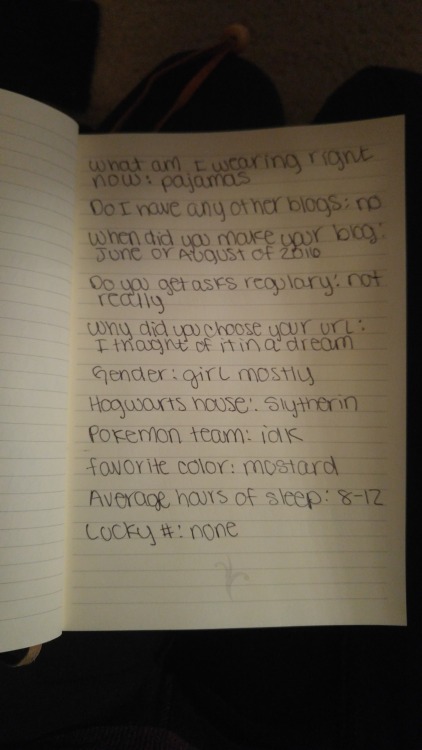 what am I wearing right
now: pajamas
Do I have any other blogs: no
when did you make your blog:
June or August of 2016
Do you get asks regulary: not
really
why did you choose your url:
I thought of it in a dream
Gender: girl mostly
Hogwarts house: Slytherin
Pokemon team: idk
favorite color: mostard
Average hours of sleep: 8-12
Lucky #: none